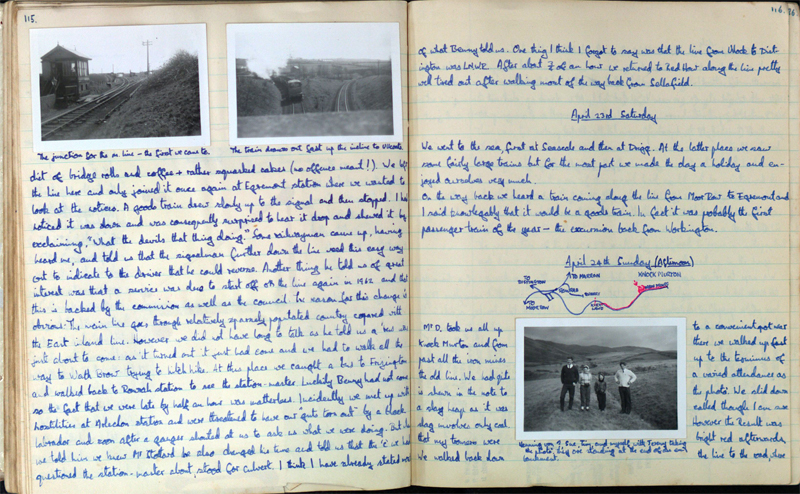 115.
The junction for the m. line - the first we came to
The train draws out fast up the incline to Ullcoats
diet of bridge rolls and coffee + rather squashed cakes (no offence meant!). We left
the line here and only joined it once again at Egremont station where we wanted to
look at the notices. A goods train drew slowly up to the signal and then stopped. I had
noticed it was down and was consequently surprised to hear it drop and showed it by
exclaiming, "What the devils that thing doing." Some railwayman came up, having
heard me, and told us that the signalman further down the line used this easy way
out to indicate to the driver that he could reverse. Another thing he told us of great
interest was that a service was due to start off on the line again in 1962 and that
this is backed by the commission as well as the council. The reason for this change is
obvious. The main line goes through relatively sparsely populated country compared with
the East inland line. However we did not have long to talk as he told us a bus was
just about to come: as it turned out it just had come and we had to walk all the
way to Wath brow trying to hitch hike. At this place we caught a bus to Frizington
and walked back to Rowrah station to see the station-master. Luckily Benny had not come
so the fact that we were late by half an hour was matterless. Incidently we met up with
hostilities at Arlecdon station and were threatened to have our "guts torn out" by a black
labrador and soon after a ganger shouted at us to ask us what we were doing. But when
we told him we knew Mr Stothard he also changed his tune and told us that the 'c' we had
questioned the station-master about, stood for culvert. I think I have already stated most
116.
of what Benny told us. One thing I think I forgot to say was that the line from Ullock to Dist-
ington was LNWR. After about ¾ of an hour we returned to Red How along the line pretty
well tired out after walking most of the way back from Sellafield.
April 23rd Saturday
We went to the sea, first at Seascale and then at Drigg. At the latter place we saw
some fairly large trains but for the most part we made the day a holiday and en-
joyed ourselves very much.
On the way back we heard a train coming along the line from Moor Row to Egremont and
I said knowlegably that it would be a goods train. In fact it was probably the first
passenger train of the year - the excursion back from Workington.
April 24th Sunday (Afternoon)
TO DISTINGTON
TO MARRON
KNOCK MURTON
TO MOOR ROW
Mr D. took us all up
Knock Murton and from
past all the iron mines
the old line. We had guts
is shown in the note to
a slag heap as it was
slag involves only coal
that my trousers were
We walked back down
to a convenient spot near
there we walked up fast
up to the terminus of
a varied attendance as
the photo. We slid down
called though I am sure
However the Result was
bright red afterwards,
the line to the road, where
Benny, Eve, Tim, and myself with Jeremy taking
the photo. They are standing at the end of the em-
bankment.